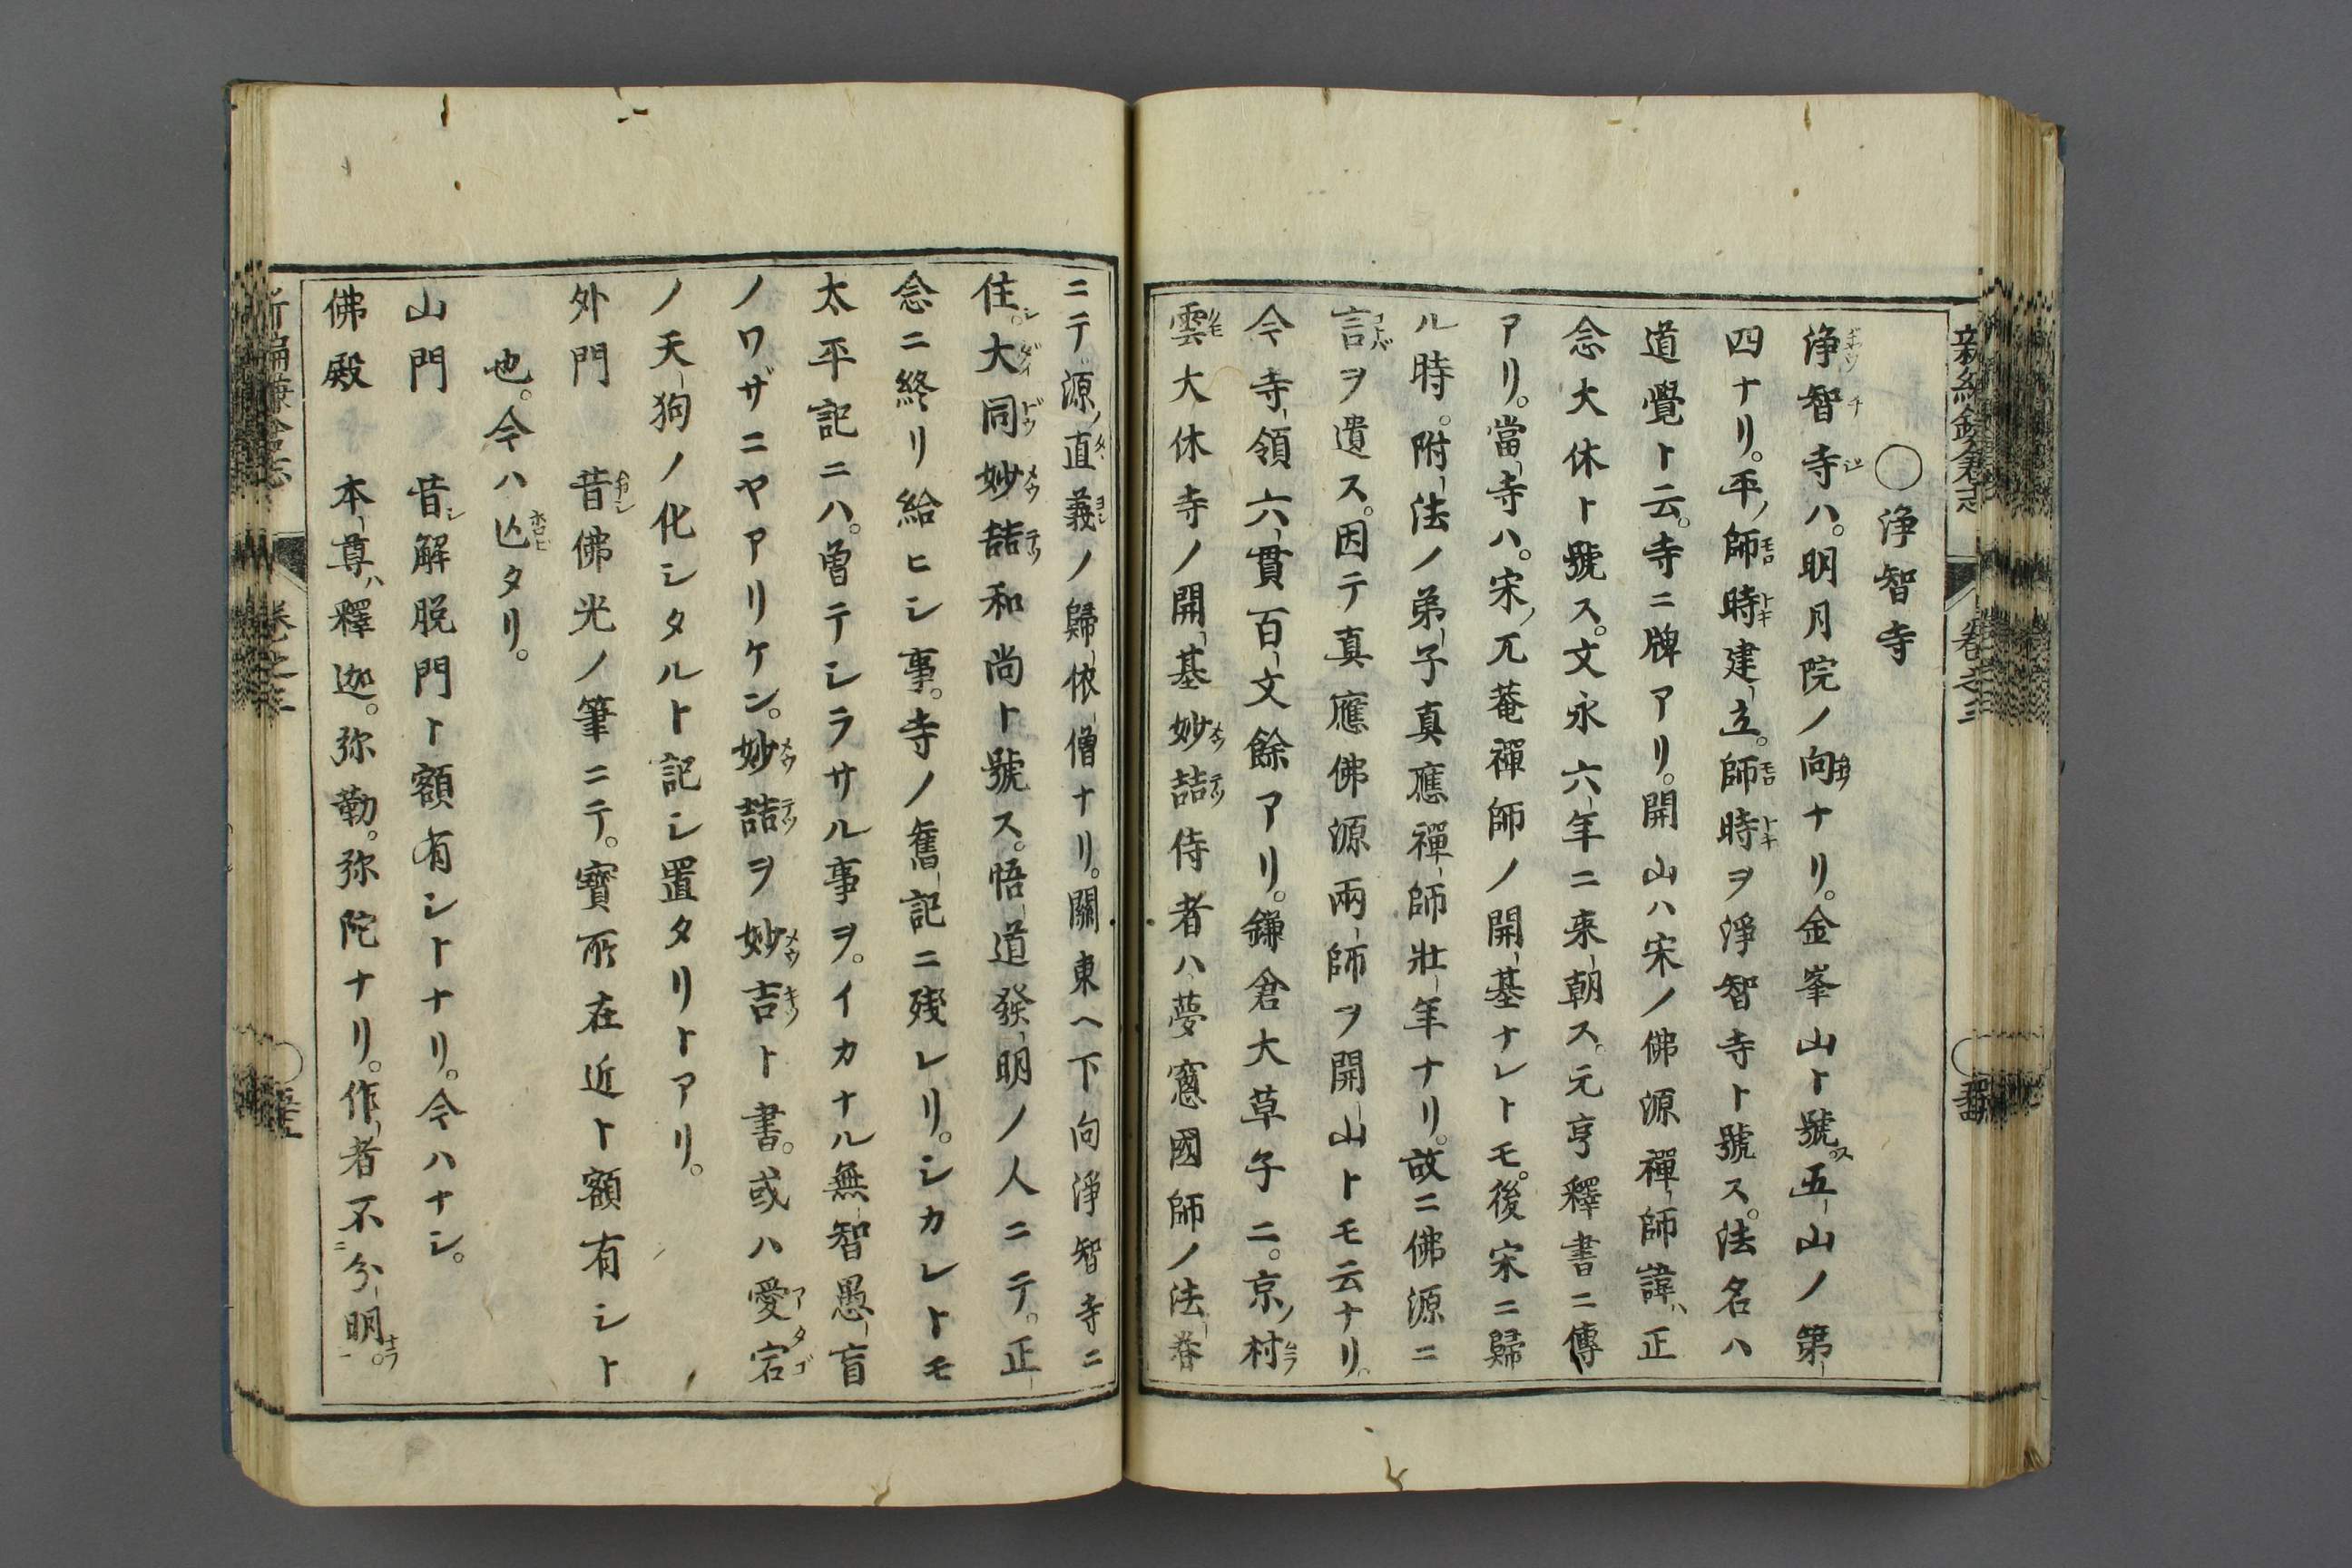 新編鎌倉志
卷之三
〇浄智寺
浄智寺ハ。明月院ノ向ナリ。金峯山ト號ス。五山ノ第
四ナリ。平ノ師時建立。師時ヲ淨智寺ト號ス。法名ハ
道覺ト云。寺ニ牌アリ。開山ハ宋ノ佛源禪師諱ハ正
念大休ト號ス。文永六年ニ來朝ス。元亨釋書ニ傳
アリ。當寺ハ。宋ノ兀菴禪師ノ開基ナレトモ。後宋ニ歸
ル時。附法ノ弟子真應禪師壯年ナリ。故ニ佛源ニ
言ヲ遺ス。因テ真應佛源兩師ヲ開山トモ云ナリ。
今寺領六貫百文餘アリ。鎌倉大草子ニ。京ノ村
雲大休寺ノ開基妙喆侍者ハ夢窓國師ノ法眷
ニテ源ノ直義ノ歸依僧ナリ。關東ヘ下向淨智寺ニ
住シ。大同妙喆和尚ト號ス。悟道發明ノ人ニテ。正
念ニ終リ給ヒシ事。寺ノ舊記ニ殘レリ。シカレトモ
太平記ニハ。曽テシラサル事ヲ。イカナル無智愚盲
ノワザニヤアリケン。妙喆ヲ妙吉ト書。或ハ愛宕
ノ天狗ノ化シタルト記シ置タリトアリ。
外門　昔佛光ノ筆ニテ。寶所在近ト額有シト
也。今ハ亾タリ。
山門　昔シ解脱門ト額有シトナリ。今ハナシ。
佛殿　本尊ハ釋迦。弥勒。弥陀ナリ。作者不分明。
卷之三